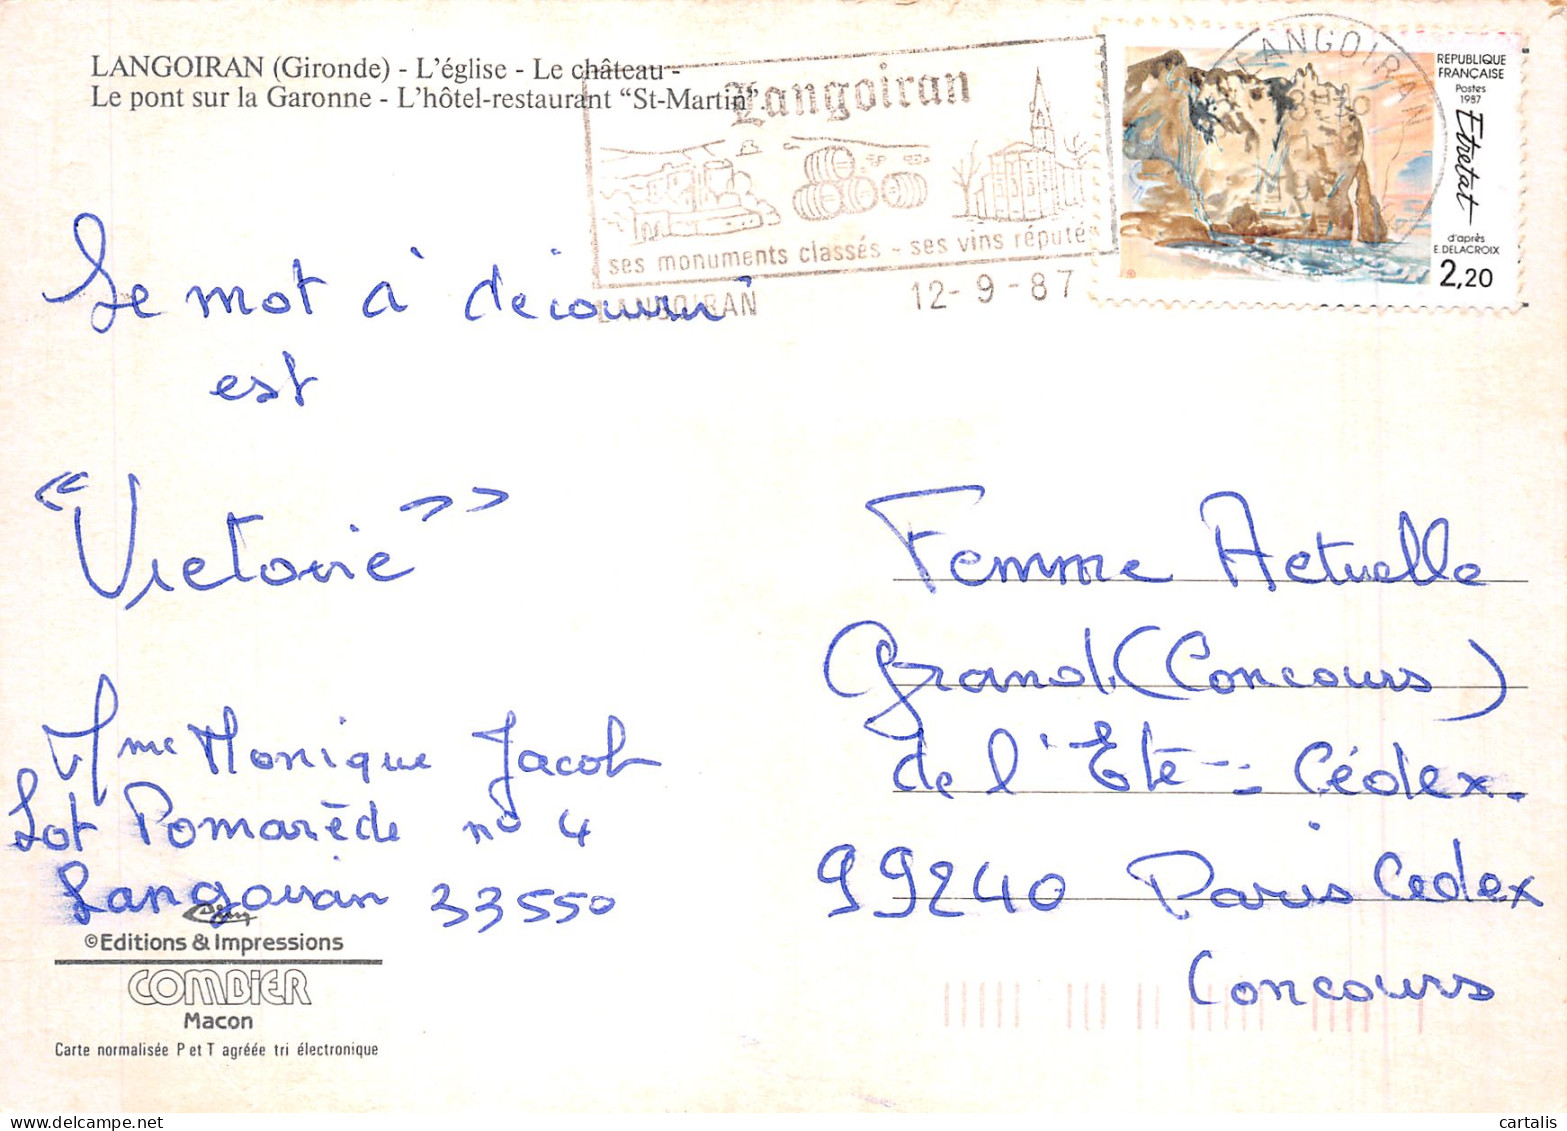 LANGOIRAN (Gironde) - L'église - Le château -
Le pont sur la Garonne - L'hôtel-restaurant "St-Martin"
Langoiran
ses monuments classés - ses vins réputés
LANGOIRAN
12-9-87
LANGOIRAN
REPUBLIQUE
FRANÇAISE
Postes
1987
Etretat
d'après
E. DELACROIX
2,20
Le mot à découvrir
est
"Victoire"
Mme Monique Jacob
Lot Pomarède n° 4
Langoiran 33550
Femme Actuelle
Grand (Concours)
de l'Eté - Cédex.
99240 Paris Cedex
Concours
©Editions & Impressions
COMBIER
Macon
Carte normalisée P et T agréée tri électronique
cartalis